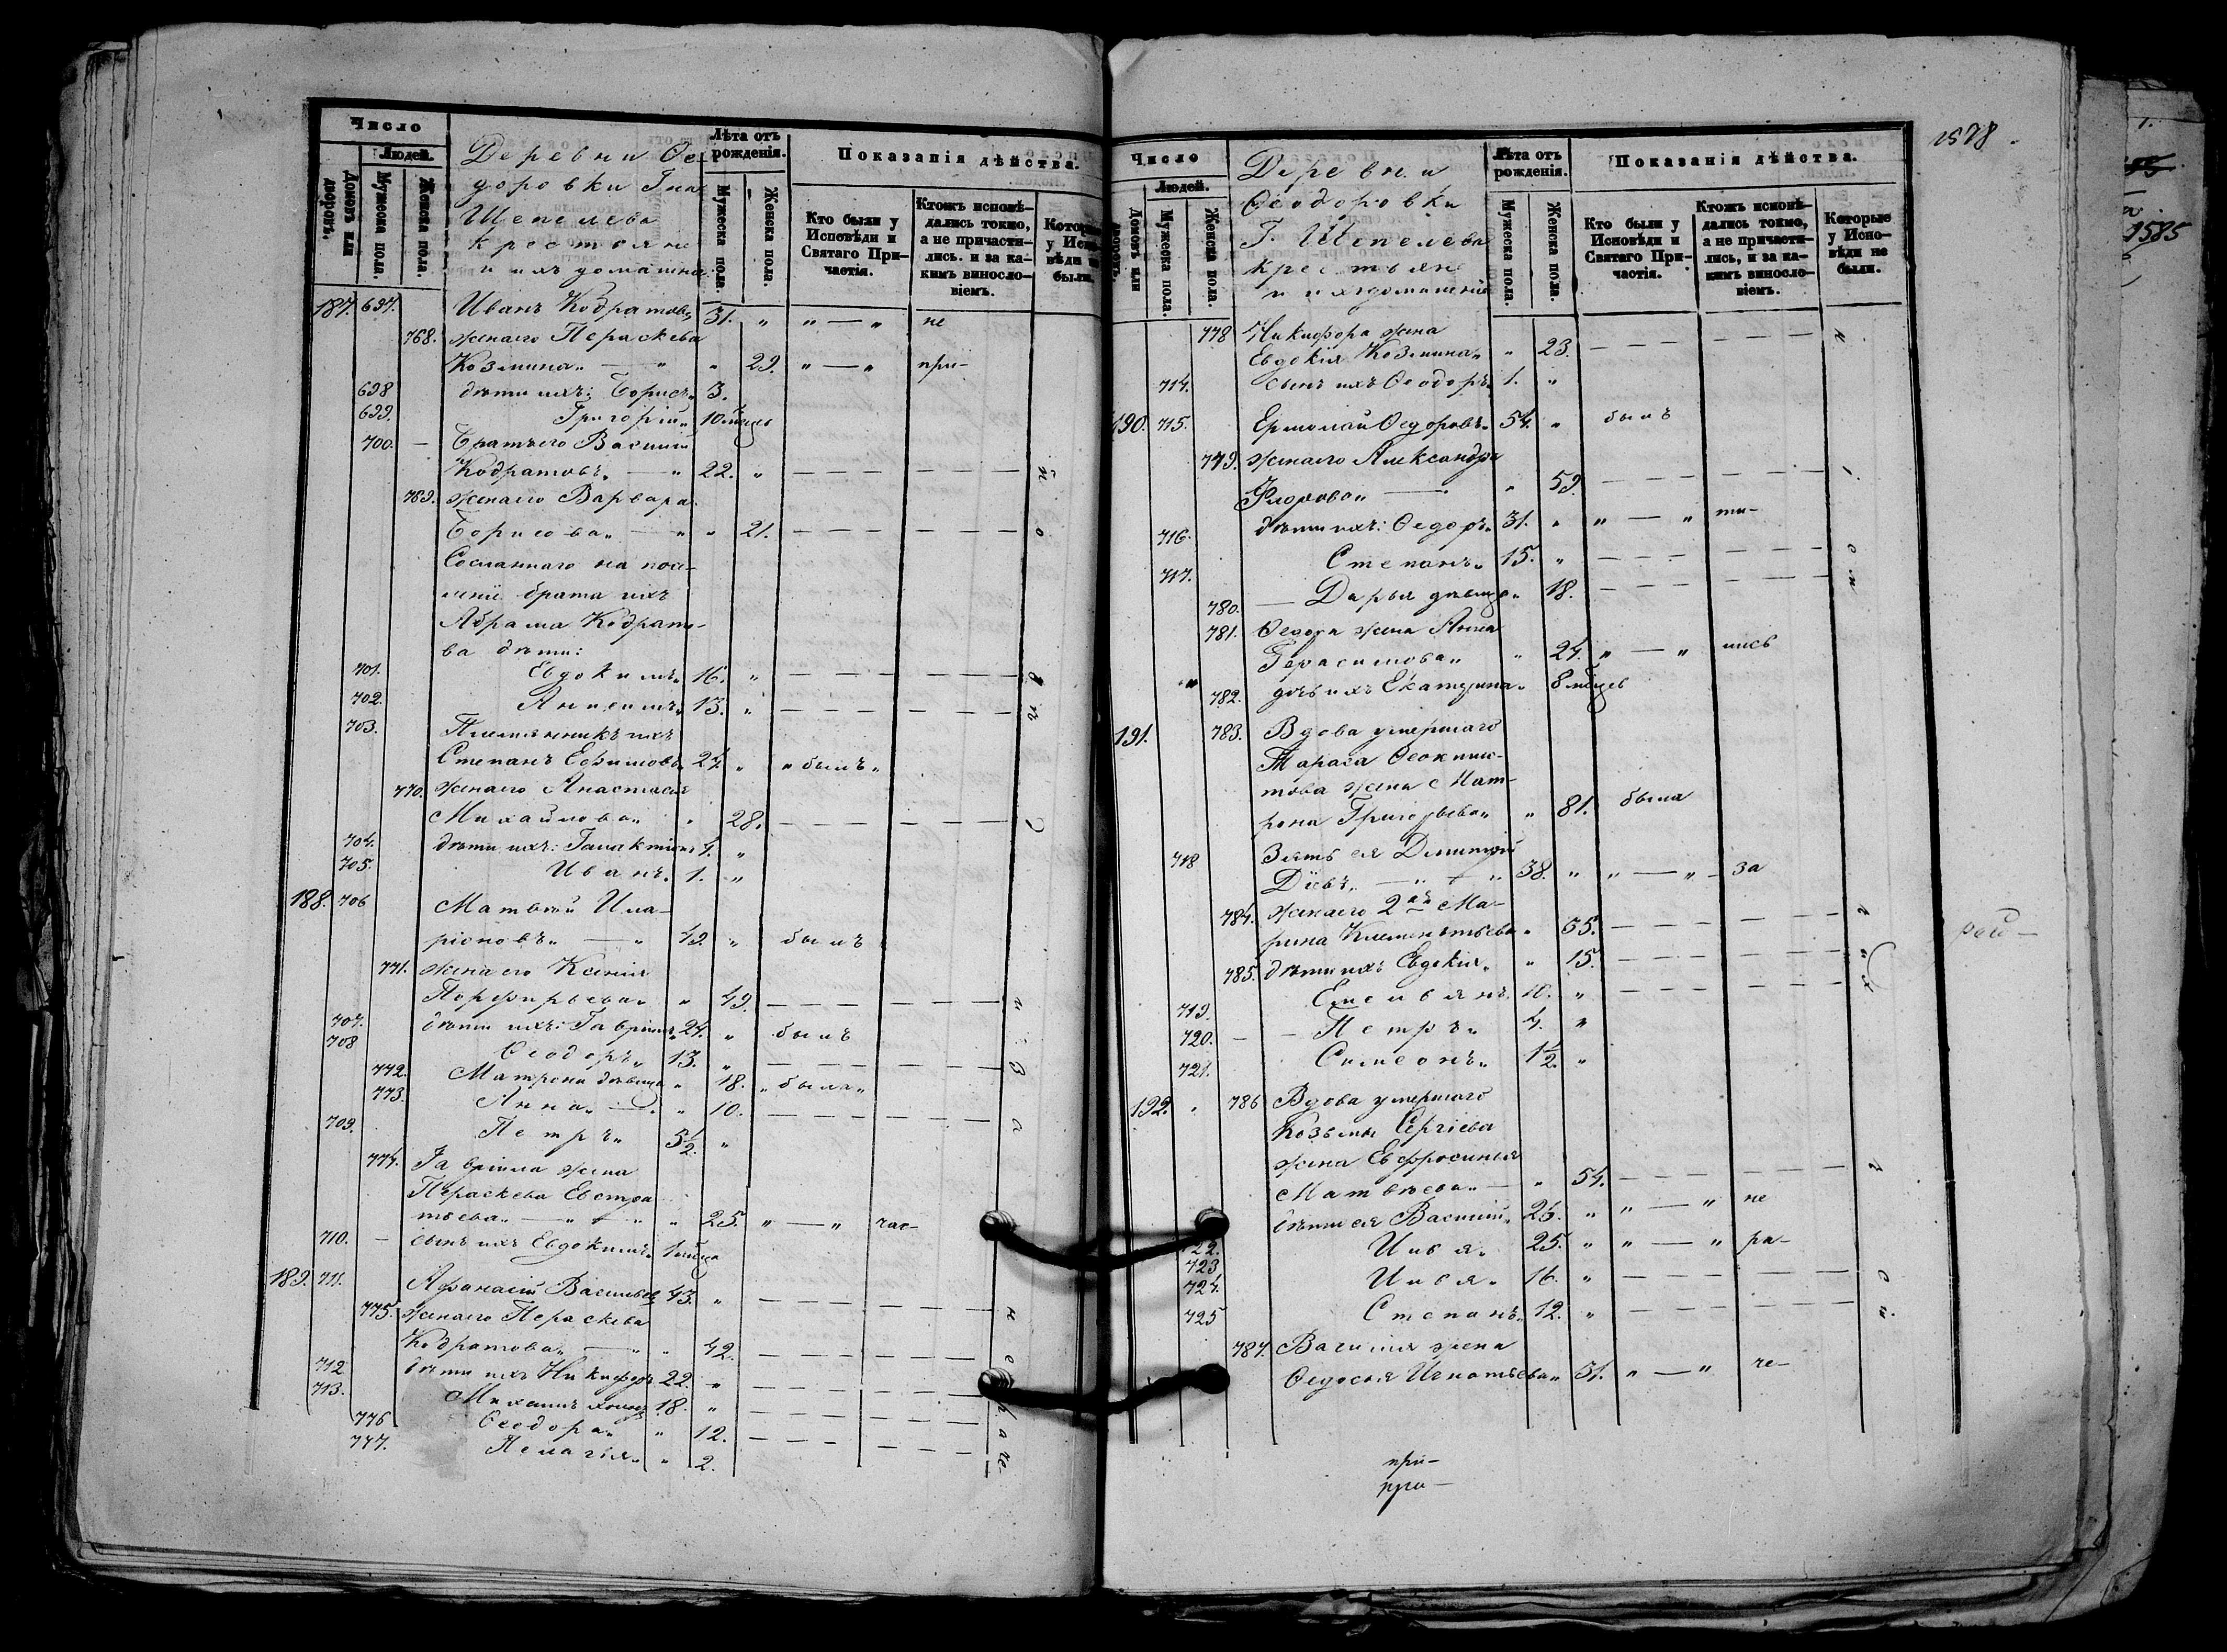 Число
Людей.
Домовъ или дворовъ.
Мужеска пола.
Женска пола.
Деревни Ѳе-
доровки Гна
Шепелева
крестьяне
и ихъ домашніе
Лѣта отъ рожденія.
Мужеска пола.
Женска пола.
Показанія дѣйства.
Кто были у Исповѣди и Святаго Причастія.
Ктожъ исповѣдались токмо, а не причастились. и за какимъ винословіемъ.
187. 697. Иванъ Кодратовъ 31. „ „ — „ не
768. жена его Параскева
Козмина „ — „ „ 29. „ — „ при-
698 дѣти ихъ: Борисъ „ 3.
699. Григорій „ 10 мѣсцъ
700. — Братъ его Василій
Кодратовъ „ — „ 22. „ — — — — — —
769. жена его Варвара
Борисова „ — „ „ 21. — — — — — — о
Сосланнаго на посе-
леніе брата ихъ
Абрама Кодрато-
ва дѣти:
701. Евдокимъ „ 16. „ — — — — — —
702. Анисимъ „ 13. „ — — — — — —
703. Племянникъ ихъ
Степанъ Ефимовъ „ 27. „ „ былъ „
770. жена его Анастасія
Михайлова „ „ 28. — — — — — —
704. дѣти ихъ: Галактіонъ 4. „
705. Иванъ. 1. „
188. 706 Матвѣй Ила-
ріоновъ „ — „ 49. „ былъ
771. жена его Ксенія
Порфирьева „ „ 49. — — — — — —
707. дѣти ихъ: Гавріилъ „ 24. „ былъ
708 Ѳеодоръ „ 13. „ — — — — — —
772. Матрона дѣвица „ 18. „ была „
773. Анна „ — „ „ 10. — — — — — —
709. Петръ „ 3½. „
774. Гавріила жена
Параскева Евстра
тьева „ — „ — „ „ 25. „ — „ час-
710. — сынъ ихъ Евдокимъ „ 1 мѣсца
189. 711. Афанасій Васильевъ 43. „ — — — — — —
775. жена его Параскева
Кодратова „ — „ „ 42. — — — — — —
712 дѣти ихъ Никифоръ 22. „ — — — — — —
713. Михаилъ холостъ 18. „ — — — — — —
776 Ѳеодора „ „ 12. — — — — — —
777. Пелагія „ „ 2.
1578
Число
Людей.
Домовъ или дворовъ.
Мужеска пола.
Женска пола.
Деревни
Ѳеодоровки
Г. Шепелева
крестьяне
и ихъ домашніе
Лѣта отъ рожденія.
Мужеска пола.
Женска пола.
Показанія дѣйства.
Кто были у Исповѣди и Святаго Причастія.
Ктожъ исповѣдались токмо, а не причастились, и за какимъ винословіемъ.
Которые у Исповѣди не были.
778 Никифора жена
Евдокія Козмина „ „ 23. — — — — — —
714. сынъ ихъ Ѳеодоръ „ 1. „
190. 715. Ермолай Ѳедоровъ „ 54. „ былъ
779. жена его Александра
Флорова „ — „ „ 59. — — — — — —
716. дѣти ихъ: Ѳедоръ „ 31. „ „ — „ ти-
717. Степанъ „ 15. „ — — — — — —
780. — Дарья дѣвица „ 18. — — — — — —
781. Ѳедора жена Анна
Герасимова „ „ 24. „ — „ лись
782. дочь ихъ Екатерина „ 8 мѣсцев
191. 783. Вдова умершаго
Тараса Ѳеоктис-
това жена Мат-
рона Григорьева „ „ 81. была
718 Зять ея Димитрій
Діевъ „ — „ — „ 38. „ „ — „ — за
784. жена его 2ая Ма-
рина Климентьева „ 35. — — — — — —
785. дѣти ихъ Евдокія „ „ 15. — — — — — —
719. Емельянъ 10. „ — — — — — —
720. — Петръ „ 4. „
721. Симеонъ „ 1½. „
192. 786 Вдова умершаго
Козьмы Сергіева
жена Евфросинья
Матвѣева „ — „ 54. — — — — — —
дѣти ея Василій „ 26. „ „ — „ не
722. Илья „ 25. „ „ — „ ра-
723
724. Илья „ 16. „ — — — — — —
725 Степанъ „ 12. „ — — — — — —
787. Василія жена
Ѳедосья Игнатьева „ 31. „ — „ че-
при-
при-
1585